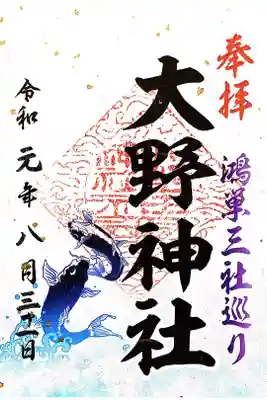 奉拝
鴻巣三社巡り
大野神社
令和元年八月二十一日